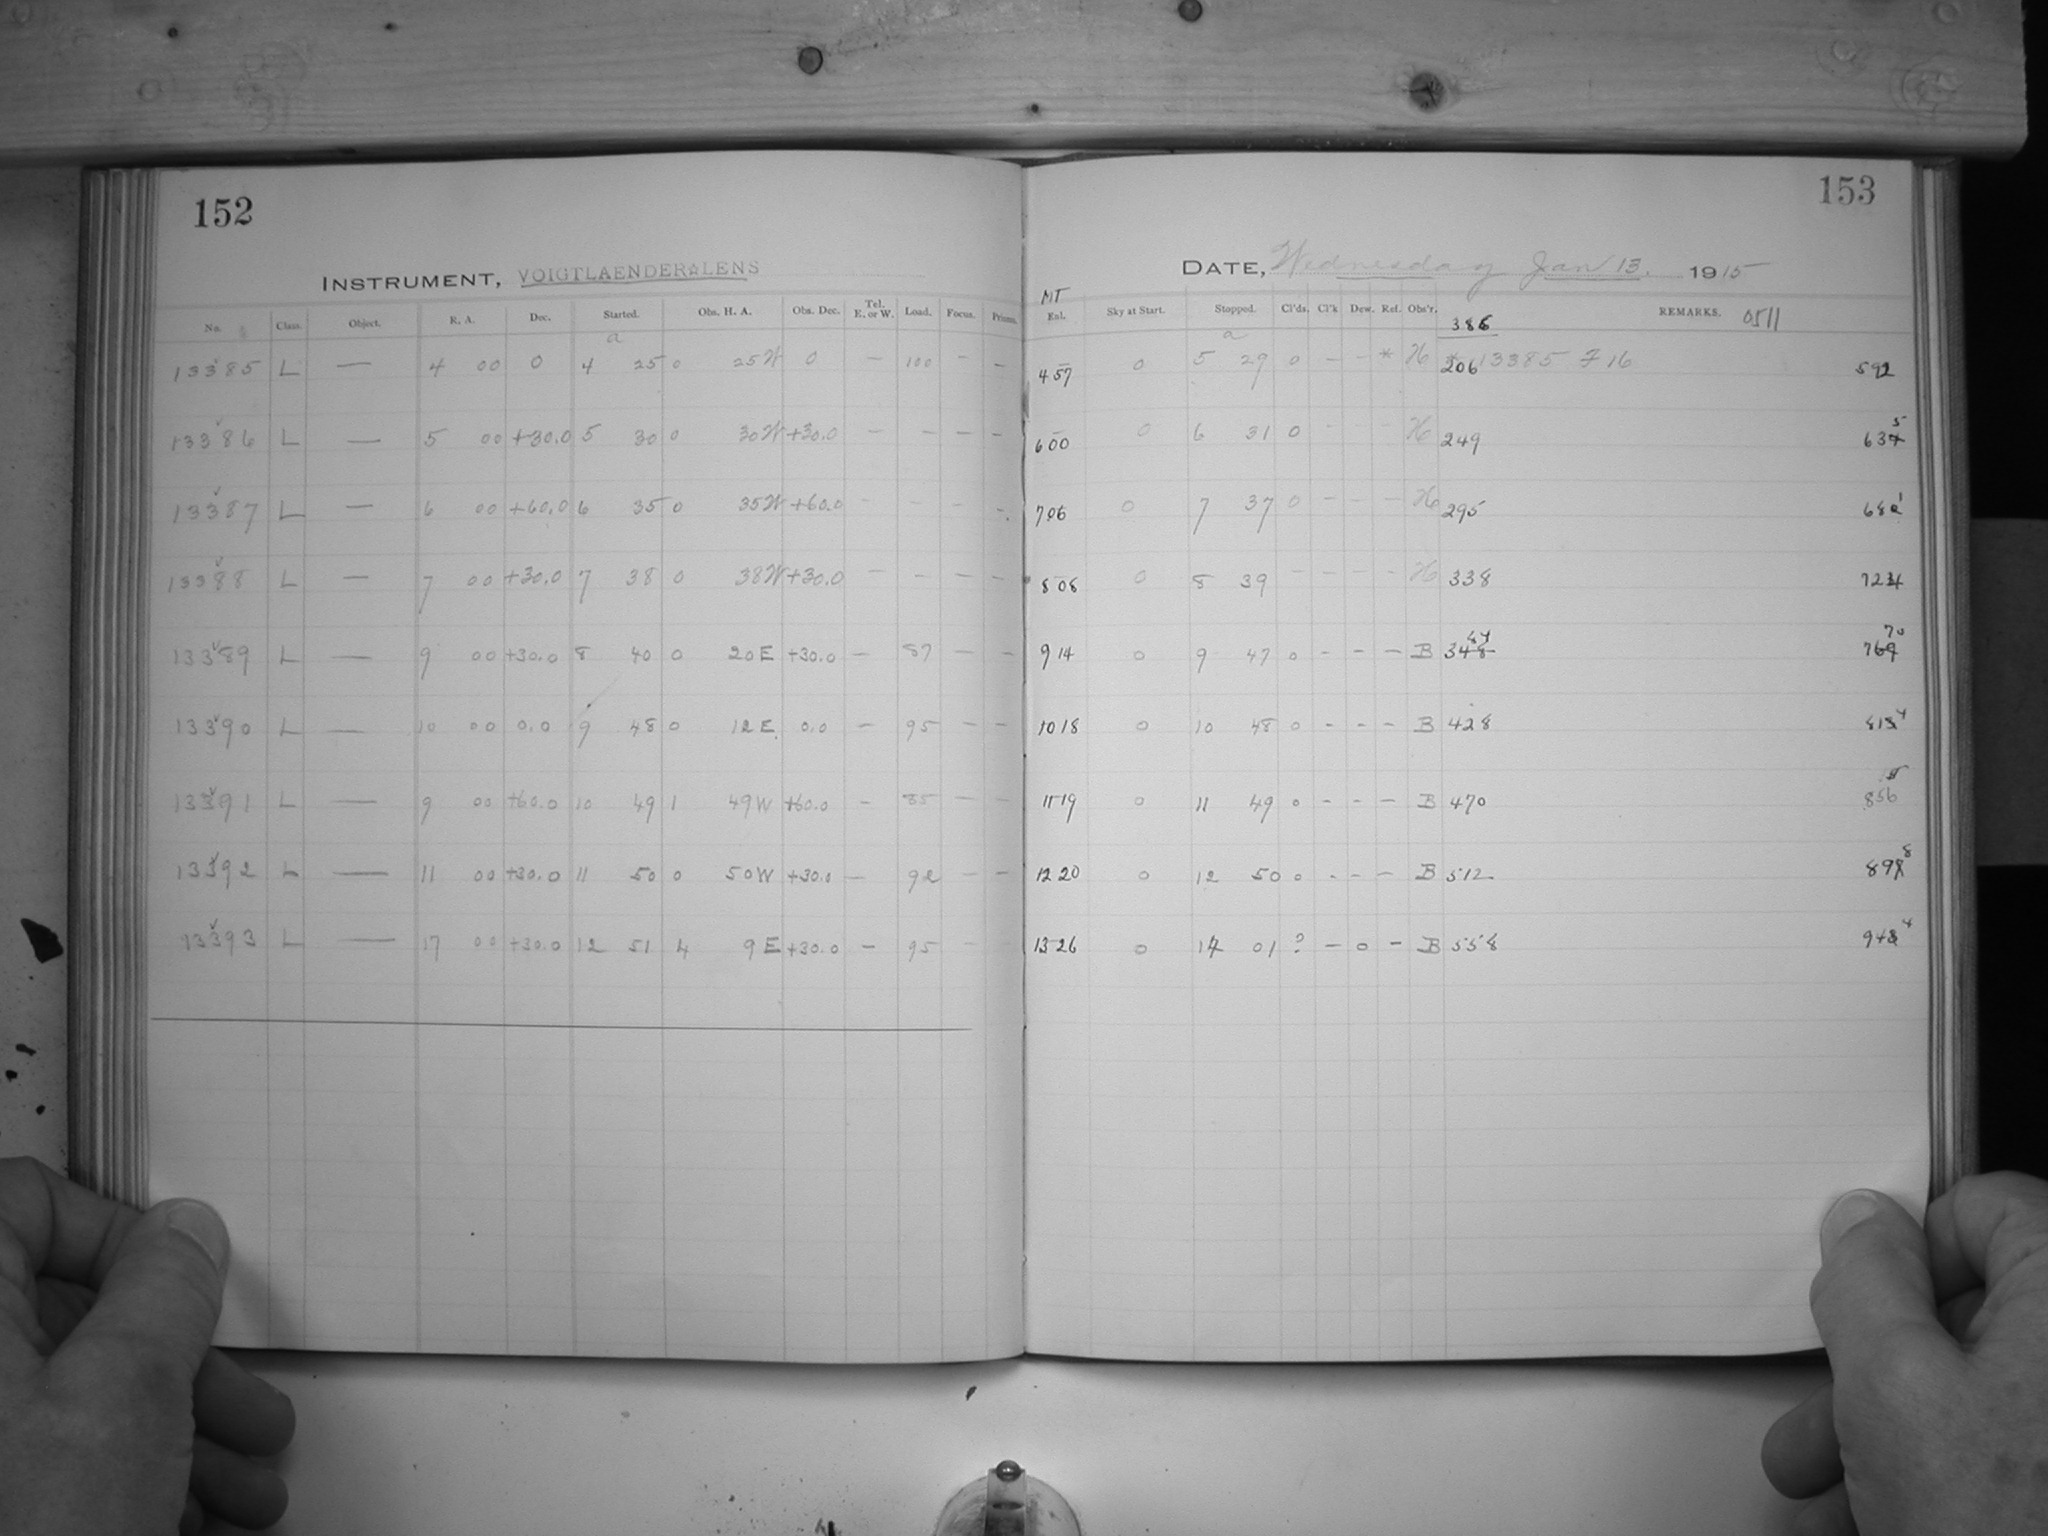 152
INSTRUMENT, VOIGTLAENDER LENS
No. Class. Object. R. A. Dec. Started. Obs. H. A. Obs. Dec. Tel. E. or W. Load. Focus. Prisms.
a
13385 L — 4 00 0 4 25 0 25 W 0 — 100 — —
13386 L — 5 00 +30.0 5 30 0 30 W +30.0 — — — —
13387 L — 6 00 +60.0 6 35 0 35 W +60.0 — — — —
13388 L — 7 00 +30.0 7 38 0 38 W +30.0 — — — —
13389 L — 9 00 +30.0 8 40 0 20 E +30.0 — 87 — —
13390 L — 10 00 0.0 9 48 0 12 E 0.0 — 95 — —
13391 L — 9 00 +60.0 10 49 1 49 W +60.0 — 85 — —
13392 L — 11 00 +30.0 11 50 0 50 W +30.0 — 92 — —
13393 L — 17 00 +30.0 12 51 4 9 E +30.0 — 95 — —
153
DATE, Wednesday Jan 13. 1915
MT
Exl. Sky at Start. Stopped. Cl'ds. Cl'k Dew. Ref. Obs'r. REMARKS. 0511
386
a
457 0 5 29 0 - - * H 206 * 13385 F 16 592
600 0 6 31 0 - - - H 249 637 5
706 0 7 37 0 - - - H 295 682 1
808 0 8 39 - - - - H 338 724
914 0 9 47 0 - - - B 348 84 769 70
1018 0 10 48 0 - - - B 428 813 4
1119 0 11 49 0 - - - B 470 856 5
1220 0 12 50 0 - - - B 512 897 8
1326 0 14 01 ? - 0 - B 558 943 4